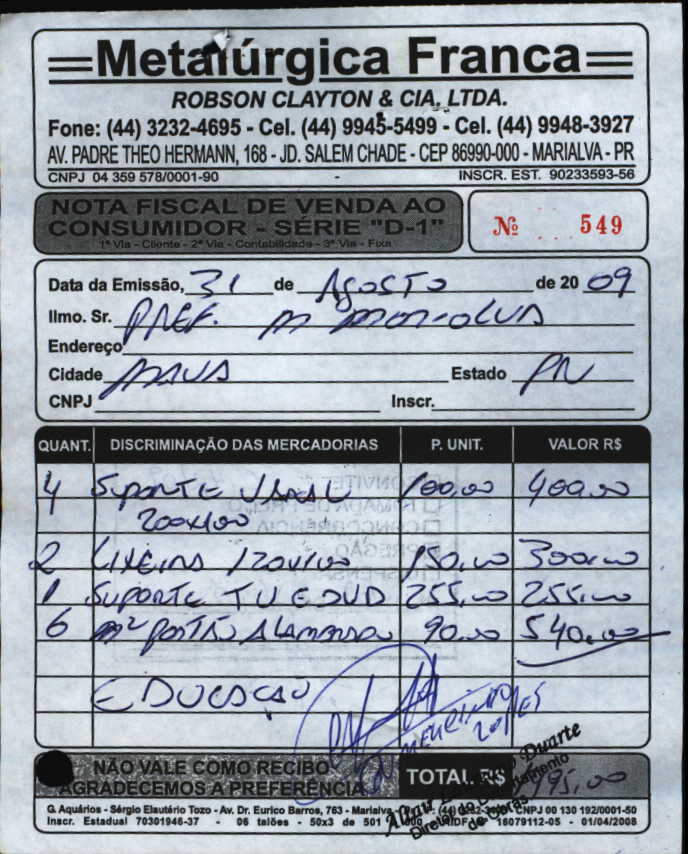 Metalúrgica Franca
ROBSON CLAYTON & CIA. LTDA.
Fone: (44) 3232-4695 - Cel. (44) 9945-5499 - Cel. (44) 9948-3927
AV. PADRE THEO HERMANN, 168 - JD. SALEM CHADE - CEP 86990-000 - MARIALVA - PR
CNPJ 04 359 578/0001-90 - INSCR. EST. 90233593-56
NOTA FISCAL DE VENDA AO
CONSUMIDOR - SÉRIE "D-1"
1ª Via - Cliente - 2ª Via - Contabilidade - 3ª Via - Fixa
Nº 549
Data da Emissão, 31 de Agosto de 20 09
Ilmo. Sr. PREF. M
Endereço
Cidade Estado PR
CNPJ Inscr.
QUANT. DISCRIMINAÇÃO DAS MERCADORIAS P. UNIT. VALOR R$
4 SUPORTE 100,00 400,00
200x100
2 LIXEIRA 120x100 150,00 300,00
1 SUPORTE TV E DVD 255,00 255,00
6 m² PORTÃO 90,00 540,00
EDUCACAO
NÃO VALE COMO RECIBO
AGRADECEMOS A PREFERÊNCIA
TOTAL R$ 95,00
Duarte
Diretor do
de Obras
G. Aquários - Sérgio Elautério Tozo - Av. Dr. Eurico Barros, 763 - Marialva CNPJ 00 130 192/0001-50
Inscr. Estadual 70301946-37 - 06 talões - 50x3 de 501 18079112-05 - 01/04/2008